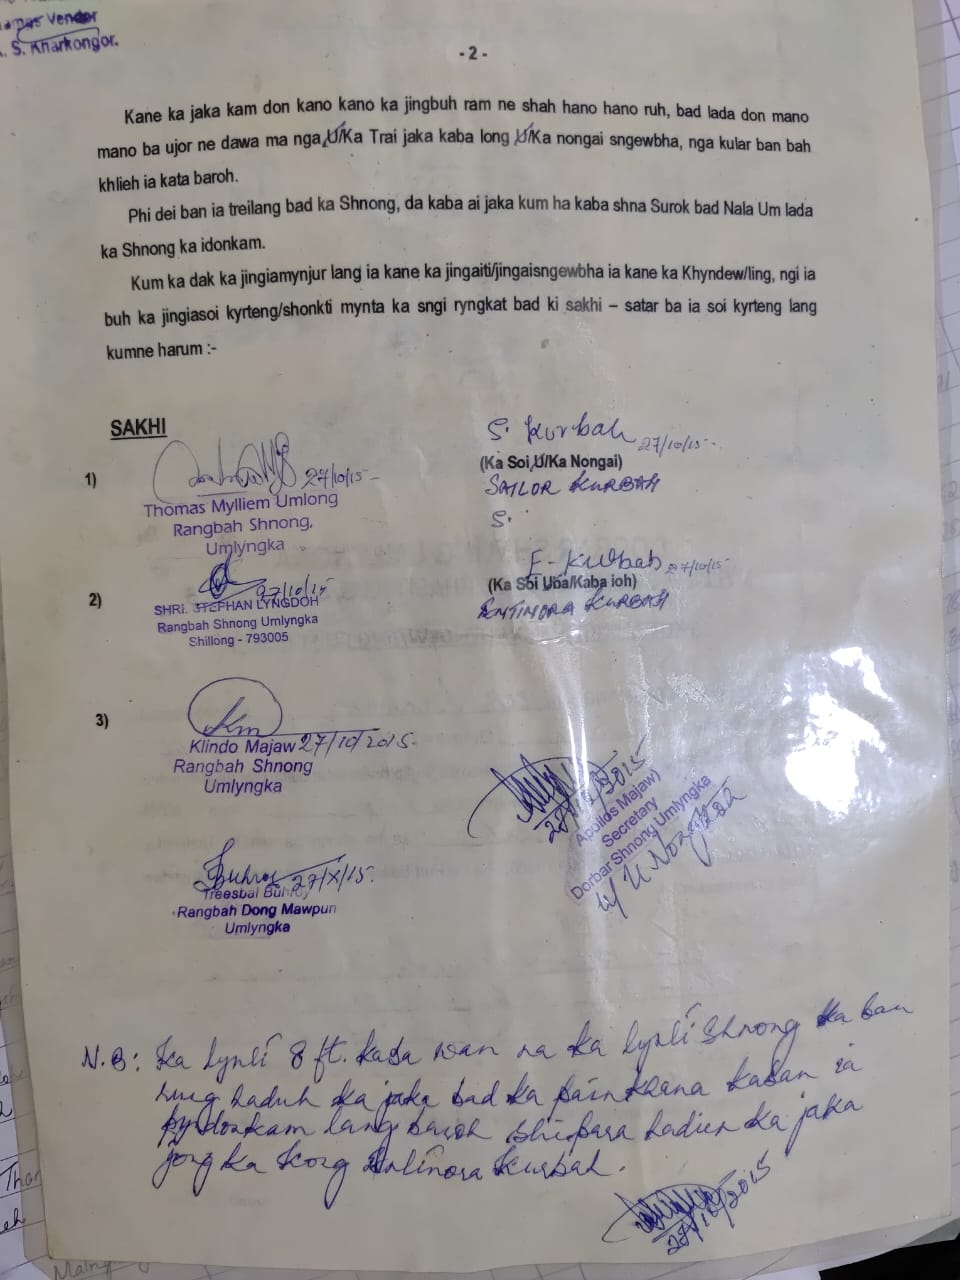 Vendor
S. Kharkongor.
- 2 -
Kane ka jaka kam don kano kano ka jingbuh ram ne shah hano hano ruh, bad lada don mano
mano ba ujor ne dawa ma nga U/Ka Trai jaka kaba long U/Ka nongai sngewbha, nga kular ban bah
khlieh ia kata baroh.
Phi dei ban ia treilang bad ka Shnong, da kaba ai jaka kum ha kaba shna Surok bad Nala Um lada
ka Shnong ka idonkam.
Kum ka dak ka jingiamynjur lang ia kane ka jingaiti/jingaisngewbha ia kane ka Khyndew/ling, ngi ia
buh ka jingiasoi kyrteng/shonkti mynta ka sngi ryngkat bad ki sakhi – satar ba ia soi kyrteng lang
kumne harum :-
SAKHI
1)
27/10/15
Thomas Mylliem Umlong
Rangbah Shnong,
Umlyngka
S. Kurbah 27/10/15
(Ka Soi U/Ka Nongai)
SAILOR KURBAH
S.
2)
27/10/15
SHRI. STEPHAN LYNGDOH
Rangbah Shnong Umlyngka
Shillong - 793005
E. Kurbah 27/10/15
(Ka Soi Uba/Kaba ioh)
ENTINORA KURBAH
3)
Km
Klindo Majaw 27/10/2015.
Rangbah Shnong
Umlyngka
(Apollos Majaw)
Secretary
Dorbar Shnong Umlyngka
Buhroy 27/X/15.
Treesbal Buhroy
Rangbah Dong Mawpun
Umlyngka
N.B: Ka lynti 8 ft. kaba wan na ka lynti Shnong ka ban
haduh ka jaka bad ka kaban ia
pyndonkam lang baroh shipara hadien ka jaka
jong ka Kong Entinora Kurbah.